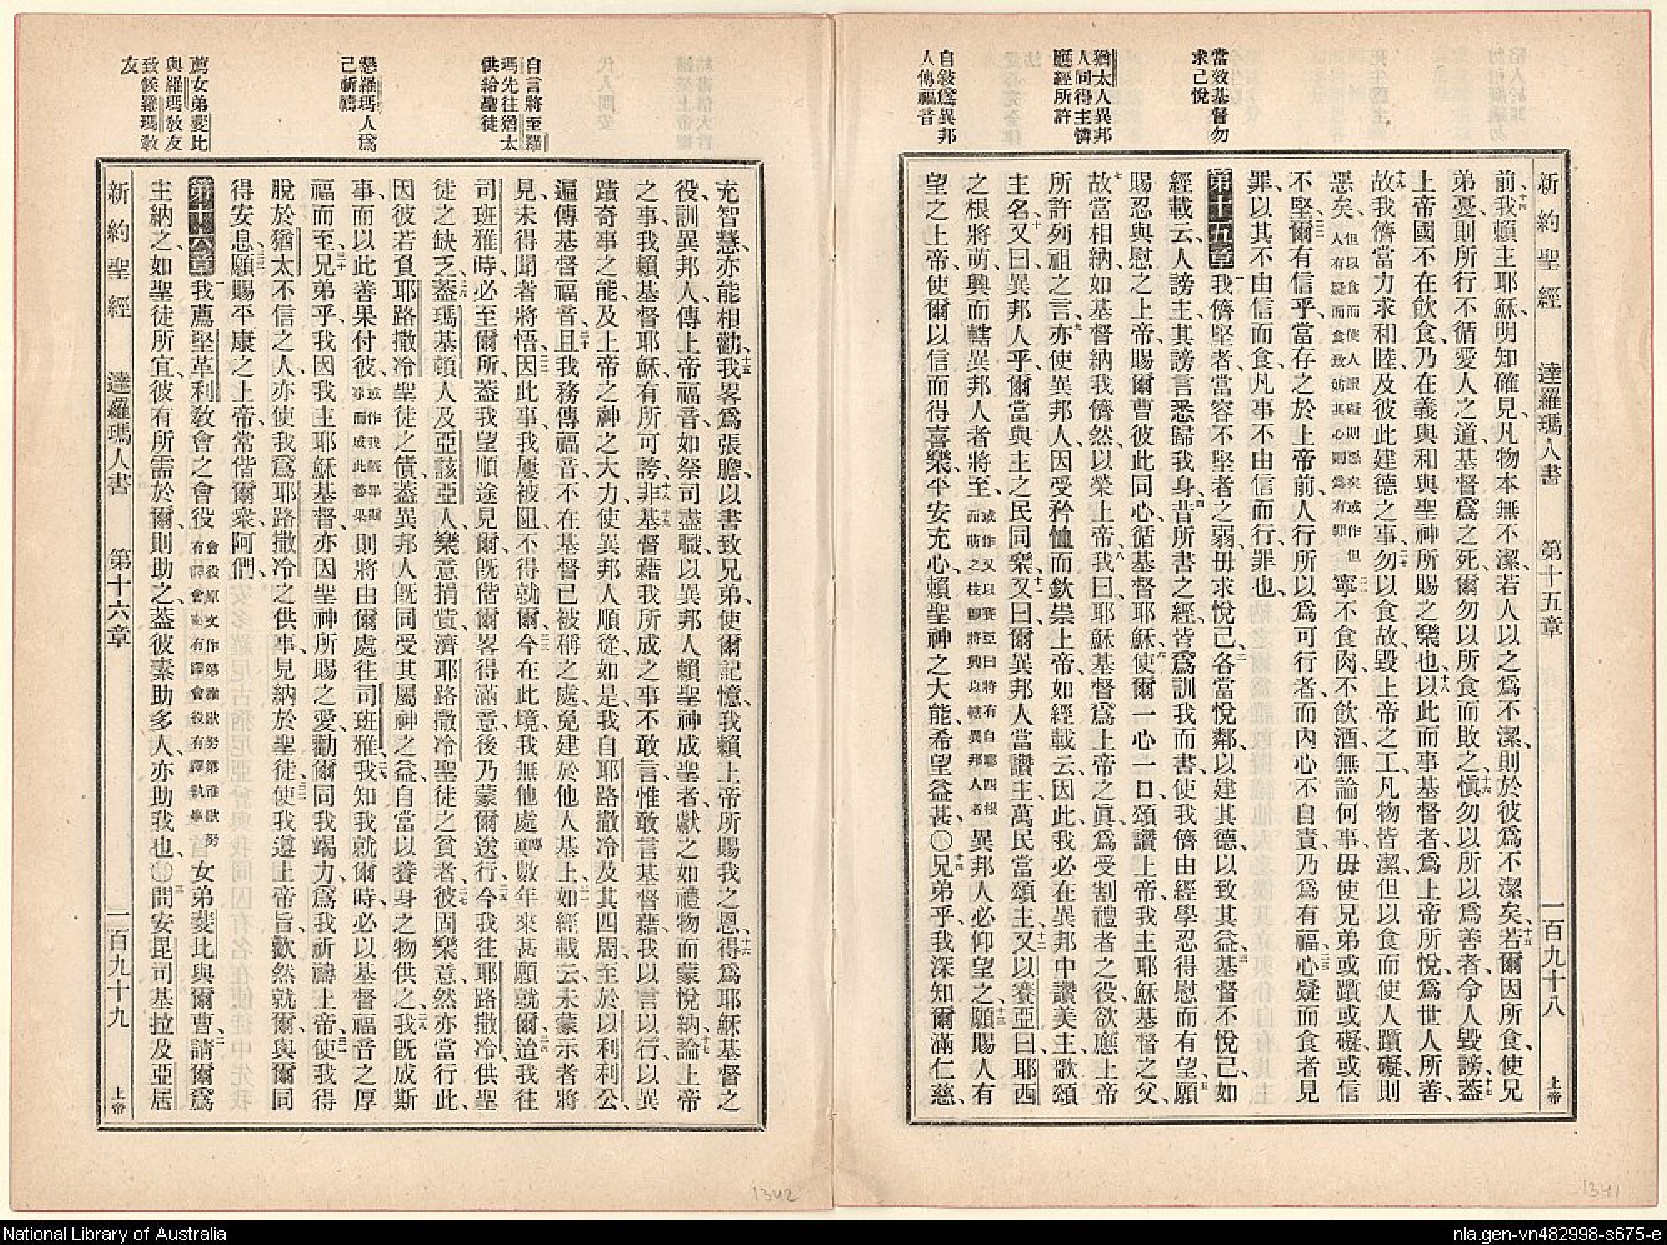 當效基督勿
求己悅
猶太人異邦
人同得主憐
誕經所許
自敘爲異邦
人傳福音
新約聖經 達羅瑪人書 第十五章 一百九十八 上帝
前、十四我賴主耶穌、明知確見、凡物本無不潔、若人以之爲不潔、則於彼爲不潔矣、十五若爾因所食、使兄
弟憂、則所行不循愛人之道、基督爲之死、爾勿以所食而敗之、十六愼勿以所以爲善者、令人毀謗、十七蓋
上帝國不在飲食、乃在義與和、與聖神所賜之樂也、十八以此而事基督者、爲上帝所悅、爲世人所善、
十九故我儕當力求和睦、及彼此建德之事、二十勿以食故、毀上帝之工、凡物皆潔、但以食而使人躓礙、則
惡矣、但以食而使人躓礙則惡矣或作但人有疑而食致妨其心則爲有罪二一寧不食肉、不飲酒、無論何事、毋使兄弟或躓或礙或信
不堅、二二爾有信乎、當存之於上帝前、人行所以爲可行者、而內心不自責、乃爲有福、二三心疑而食者見
罪、以其不由信而食、凡事不由信而行、罪也、
第十五章一我儕堅者、當容不堅者之弱、毋求悅己、二各當悅鄰、以建其德、以致其益、三基督不悅己、如
經載云、人謗主、其謗言悉歸我身、四昔所書之經、皆爲訓我而書、使我儕由經學忍得慰而有望、五願
賜忍與慰之上帝、賜爾曹彼此同心、循基督耶穌、六使爾一心一口、頌讚上帝、我主耶穌基督之父、
七故當相納、如基督納我儕然、以榮上帝、八我曰、耶穌基督爲上帝之眞、爲受割禮者之役、欲應上帝
所許列祖之言、九亦使異邦人、因受矜恤而欽崇上帝、如經載云、因此我必在異邦中讚美主、歌頌
主名、十又曰、異邦人乎、爾當與主之民同樂、十一又曰、爾異邦人當讚主、萬民當頌主、十二又以賽亞曰、耶西
之根將萌、興而轄異邦人者將至、或作又以賽亞曰將有自耶西根而肪之枝卽將興以轄異邦人者異邦人必仰望之、十三願賜人有
望之上帝、使爾以信而得喜樂、平安充心、賴聖神之大能、希望益甚、〇十四兄弟乎、我深知爾滿仁慈、
自言將至羅
瑪先往猶太
供給聖徒
懇羅瑪人爲
己祈禱
薦女弟斐比
與羅瑪教友
致候羅瑪教
友
充智慧、亦能相勸、十五我畧爲張膽、以書致兄弟、使爾記憶、我賴上帝所賜我之恩、十六得爲耶穌基督之
役、訓異邦人、傳上帝福音、如祭司盡職、以異邦人賴聖神成聖者、獻之如禮物而蒙悅納、十七論上帝
之事、我賴基督耶穌、有所可誇、十八十九非基督藉我所成之事、不敢言、惟敢言基督藉我以言以行、以異
蹟奇事之能、及上帝之神之大力、使異邦人順從、如是、我自耶路撒冷、及其四周、至於以利利公、
遍傳基督福音、二十且我務傳福音、不在基督已被稱之處、免建於他人基上、二一如經載云、未蒙示者將
見、未得聞者將悟、二二因此事、我屢被阻、不得就爾、二三今在此境、我無他處可傳數年來甚願就爾、二四迨我往
司班雅時、必至爾所、蓋我望順途見爾、旣偕爾畧得滿意後、乃蒙爾送行、二五今我往耶路撒冷供聖
徒之缺乏、二六蓋瑪基頓人、及亞該亞人、樂意捐貲、濟耶路撒冷聖徒之貧者、二七彼固樂意、然亦當行此、
因彼若負耶路撒冷聖徒之債、蓋異邦人旣同受其屬神之益、自當以養身之物供之、二八我旣成斯
事、而以此善果付彼、則將由爾處往司班雅、二九我知我就爾時、必以基督福音之厚
福而至、三十兄弟乎、我因我主耶穌基督、亦因聖神所賜之愛、勸爾同我竭力、爲我祈禱上帝、三一使我得
脫於猶太不信之人、亦使我爲耶路撒冷之供事、見納於聖徒、三二使我遵上帝旨、歡然就爾、與爾同
得安息、三三願賜平康之上帝、常偕爾衆、阿們、
第十六章一我薦堅革利敎會之會役會役原文作弟雅欲努弟雅欲努有譯會婦有譯會役有譯執事女弟斐比與爾曹、二請爾爲
主納之、如聖徒所宜、彼有所需於爾、則助之、蓋彼素助多人、亦助我也、〇三問安百基拉及亞居
新約聖經 達羅瑪人書 第十六章 一百九十九 上帝
1342
1341
National Library of Australia
nla.gen-vn482998-s675-e